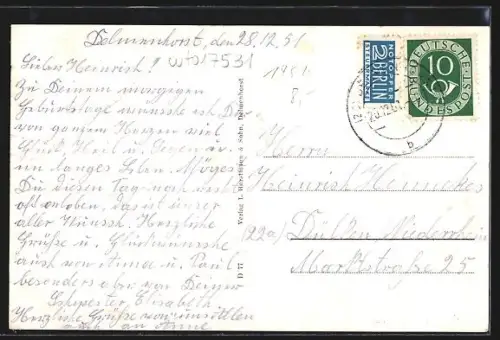 Delmenhorst, den 28.12.51
Lieber Heinrich!
W+D17531
Zu Deinem morgegen
Geburtstage wünsche ich Dir
von ganzem Herzen viel
Glück Heil u. Segen u.
ein langes Leben. Mögest
Du diesen Tag noch recht
oft erleben, das ist unser
aller Wunsch. Herzliche
Grüße u. Glückwünsche
auch von Anna u. Paul
besonders aber von Deiner
Schwester, Elisabeth
Herzliche Grüße von uns Allen
auch an Anne
Verlag L. Hesselbrügge &amp; Sohn, Delmenhorst
D 77
1951
8,-
NOTOPFER
2 BERLIN
STEUERMARKE
DEUTSCHE BUNDESPOST
10
b
Herrn
Heinrich Hennekes
(22a) Dülken, Niederrhein
Marktstraße 25